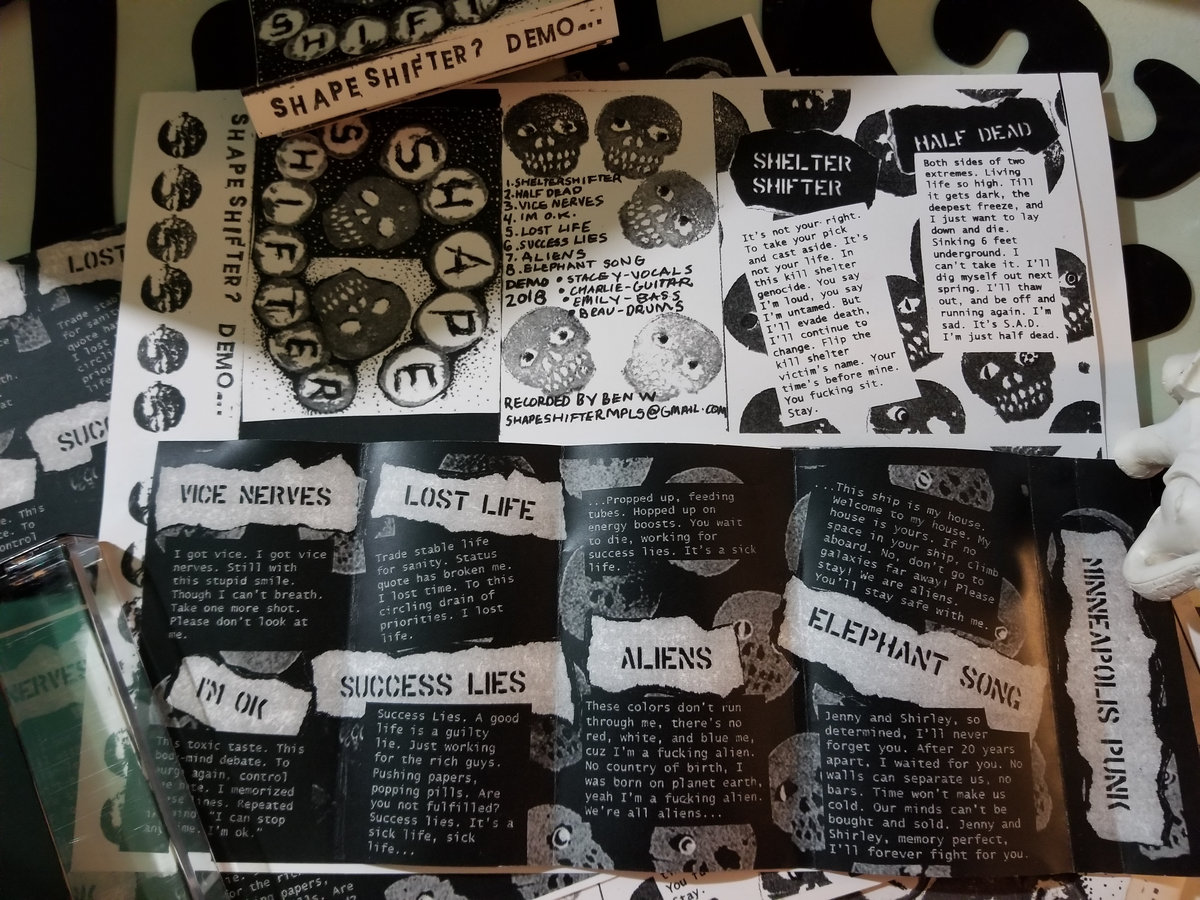 SHIFT
SHAPESHIFTER? DEMO...
SHAPESHIFTER? DEMO...
SHAPE
SHIFTER
1. SHELTERSHIFTER
2. HALF DEAD
3. VICE NERVES
4. IM O.K.
5. LOST LIFE
6. SUCCESS LIES
7. ALIENS
8. ELEPHANT SONG
DEMO • STACEY-VOCALS
2018 • CHARLIE-GUITAR
• EMILY-BASS
• BEAU-DRUMS
RECORDED BY BEN W
SHAPESHIFTERMPLS@GMAIL.COM
SHELTER
SHIFTER
It's not your right.
To take your pick
and cast aside. It's
not your life. In
this kill shelter
genocide. You say
I'm loud, you say
I'm untamed. But
I'll evade death,
I'll continue to
change. Flip the
kill shelter
victim's name. Your
time's before mine.
You fucking sit.
Stay.
HALF DEAD
Both sides of two
extremes. Living
life so high. Till
it gets dark, the
deepest freeze, and
I just want to lay
down and die.
Sinking 6 feet
underground. I
can't take it. I'll
dig myself out next
spring. I'll thaw
out, and be off and
running again. I'm
sad. It's S.A.D.
I'm just half dead.
LOST
Trade sta
for sanit
quote ha
I lost
circli
prior
life
SUCC
VICE NERVES
I got vice. I got vice
nerves. Still with
this stupid smile.
Though I can't breath.
Take one more shot.
Please don't look at
me.
I'M OK
This toxic taste. This
body-mind debate. To
purge again, control
I memorized
lines. Repeated
"I can stop
I'm ok."
LOST LIFE
Trade stable life
for sanity. Status
quote has broken me.
I lost time. To this
circling drain of
priorities. I lost
life.
SUCCESS LIES
Success Lies. A good
life is a guilty
lie. Just working
for the rich guys.
Pushing papers,
popping pills. Are
you not fulfilled?
Success lies. It's a
sick life, sick
life...
...Propped up, feeding
tubes. Hopped up on
energy boosts. You wait
to die, working for
success lies. It's a sick
life.
ALIENS
These colors don't run
through me, there's no
red, white, and blue me,
cuz I'm a fucking alien.
No country of birth, I
was born on planet earth,
yeah I'm a fucking alien.
We're all aliens...
...This ship is my house.
Welcome to my house. My
house is yours. If no
space in your ship, climb
aboard. No, don't go to
galaxies far away! Please
stay! We are aliens.
You'll stay safe with me.
ELEPHANT SONG
Jenny and Shirley, so
determined, I'll never
forget you. After 20 years
apart, I waited for you. No
walls can separate us, no
bars. Time won't make us
cold. Our minds can't be
bought and sold. Jenny and
Shirley, memory perfect,
I'll forever fight for you.
MINNEAPOLIS PUNK
NERVES
for the ri
papers,
Are
You fu
Stay.